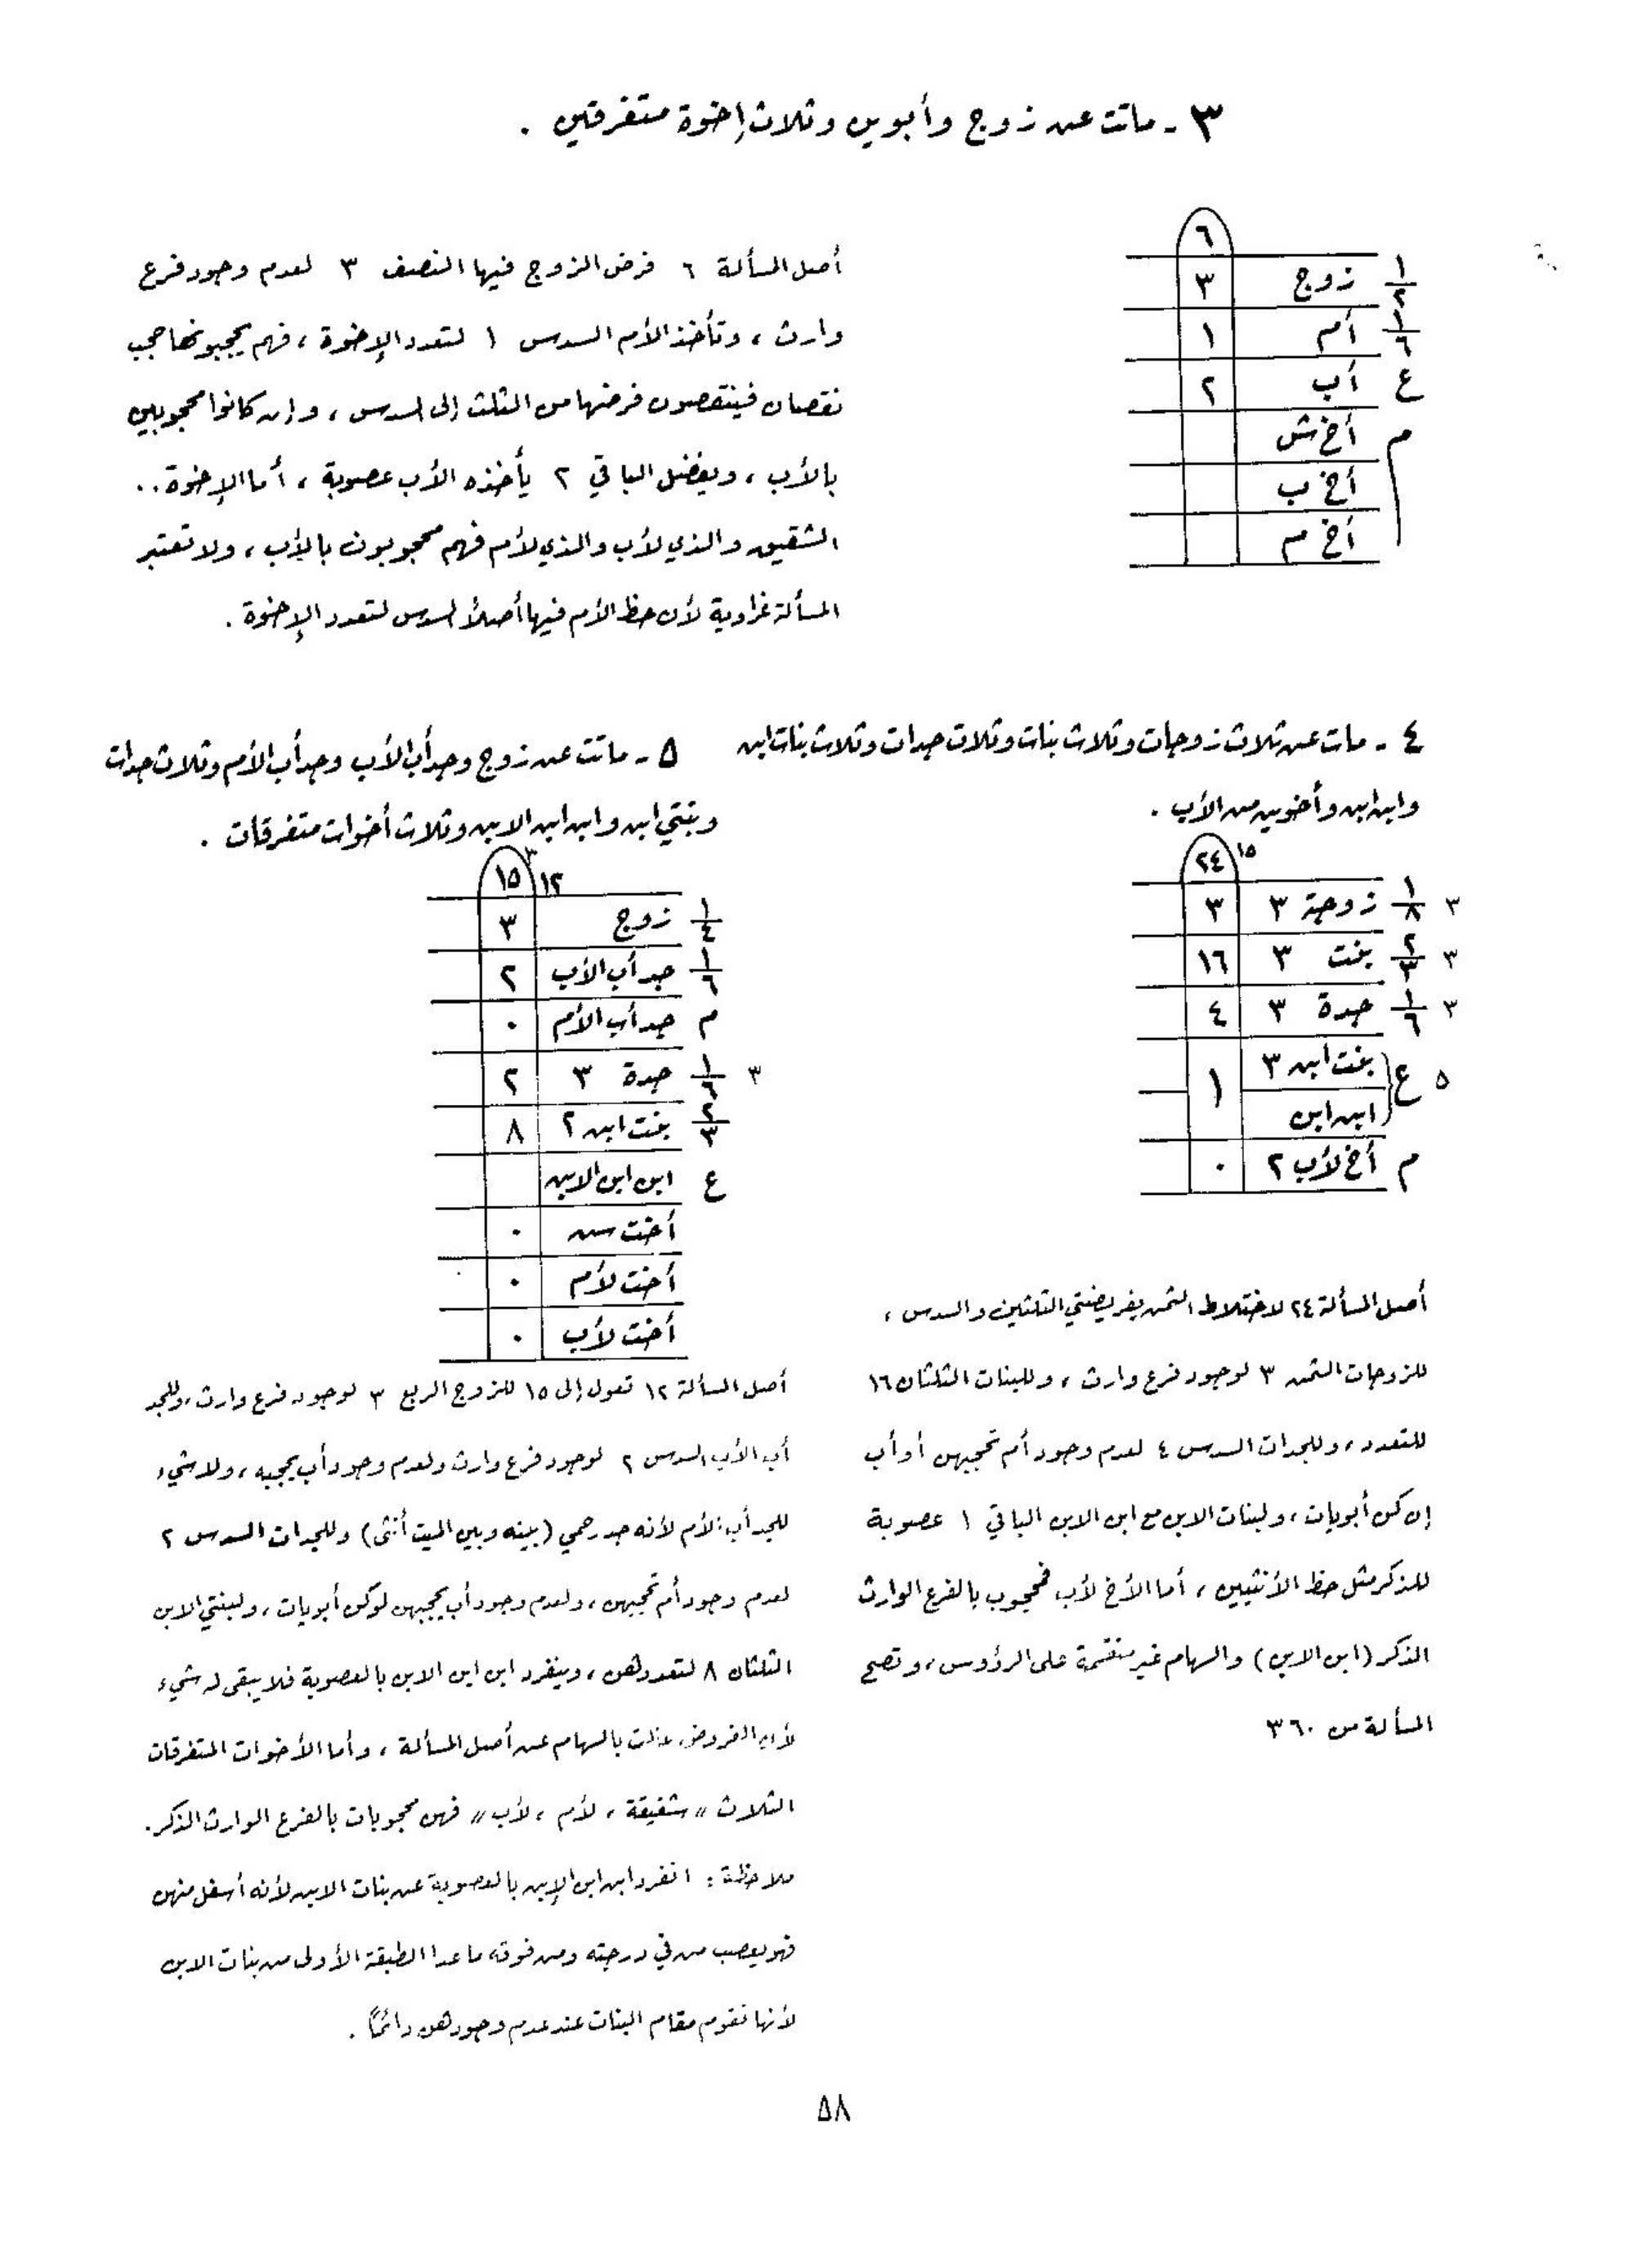 ٣ - ماتت عن زوج وأبوين وثلاث إخوة متفرقين .
٦
١/٢ زوج ٣
١/٦ أم ١
ع أب ٢
م أخ ش
أخ ب
أخ م
أصل المسألة ٦ فرض الزوج فيها النصف ٣ لعدم وجود فرع
وارث ، وتأخذ الأم السدس ١ لتعدد الإخوة ، فهم يحجبونها حجب
نقصان فينقصون فرضها من الثلث إلى السدس ، وإن كانوا محجوبين
بالأب ، ويفضل الباقي ٢ يأخذه الأب عصوبة ، أما الإخوة ..
الشقيق والذي لأب والذي لأم فهم محجوبون بالأب ، ولا تعتبر
المسألة غراوية لأن حظ الأم فيها أصلاً السدس لتعدد الإخوة .
٤ - مات عن ثلاث زوجات وثلاث بنات وثلاث جدات وثلاث بنات ابن
وابن ابن وأخوين من الأب .
٢٤ ١٥
٣ ١/٨ زوجة ٣ ٣
٣ ٢/٣ بنت ٣ ١٦
٣ ١/٦ جدة ٣ ٤
٥ ع بنت ابن ٣ ١
ابن ابن
م أخ لأب ٢ ٠
أصل المسألة ٢٤ لاختلاط الثمن بفريضتي الثلثين والسدس ،
للزوجات الثمن ٣ لوجود فرع وارث ، وللبنات الثلثان ١٦
للتعدد ، وللجدات السدس ٤ لعدم وجود أم تحجبهن أو أب
إن كن أبويات ، ولبنات الابن مع ابن الابن الباقي ١ عصوبة
للذكر مثل حظ الأنثيين ، أما الأخ لأب فمحجوب بالفرع الوارث
الذكر (ابن الابن) والسهام غير منقسمة على الرؤوس ، وتصح
المسألة من ٣٦٠
٥ - ماتت عن زوج وجد أب الأب وجد أب الأم وثلاث جدات
وبنتي ابن وابن ابن الابن وثلاث أخوات متفرقات .
٣
١٥ ١٢
١/٤ زوج ٣
١/٦ جد أب الأب ٢
م جد أب الأم ٠
٣ ١/٦ جدة ٣ ٢
٢/٣ بنت ابن ٢ ٨
ع ابن ابن الابن
أخت ٠
أخت لأم ٠
أخت لأب ٠
أصل المسألة ١٢ تعول إلى ١٥ للزوج الربع ٣ لوجود فرع وارث ، وللجد
أبي الأب السدس ٢ لوجود فرع وارث ولعدم وجود أب يحجبه ، ولا شيء
للجد أب الأم لأنه جد رحمي (بينه وبين الميت أنثى) وللجدات السدس ٢
لعدم وجود أم تحجبهن ، ولعدم وجود أب يحجبهن لو كن أبويات ، ولبنتي الابن
الثلثان ٨ لتعددهن ، وينفرد ابن ابن الابن بالعصوبة فلا يبقى له شيء
لأن الفروض عالت بالسهام عن أصل المسألة ، وأما الأخوات المتفرقات
الثلاث " شقيقة ، لأم ، لأب " فهن محجوبات بالفرع الوارث الذكر .
ملاحظة : انفرد ابن ابن الابن بالعصوبة عن بنات الابن لأنه أسفل منهن
فهو يعصب من في درجته ومن فوقه ما عدا الطبقة الأولى من بنات الابن
لأنها تقوم مقام البنات عند عدم وجودهن دائماً .
٥٨